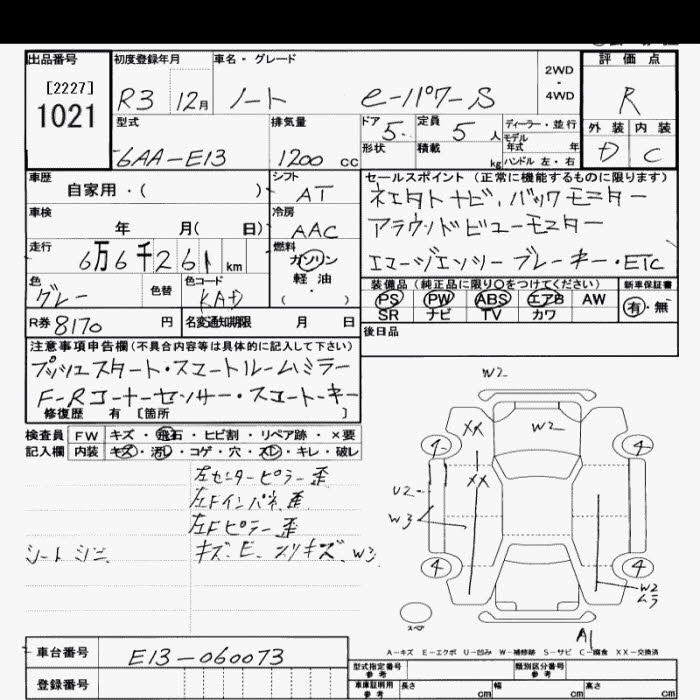 出品番号 初度登録年月 車名・グレード 2WD ・ 4WD 評価点
[2227]
1021
R3 12月 ノート e-パワーS R
型式 排気量 ドア 定員 ディーラー・並行 外装 内装
6AA-E13 1200 cc 5 5 人 モデル年式 年 D C
形状 積載 kg ハンドル 左・右
車歴 シフト セールスポイント(正常に機能するものに限ります)
自家用・( ) AT
車検 冷房
年 月( 日) AAC アラウンドビューモニター
走行 燃料
6万6千261 km ガソリン エマージェンシーブレーキ・ETC
色 色替 色コード 軽油 装備品(純正品に限り○をつけてください) 新車保証書
グレー KAD ( ) PS PW ABS エアB AW 有・無
SR ナビ TV カワ
R券 8170 円 名変通知期限 月 日 後日品
注意事項申告欄(不具合内容等は具体的に記入して下さい)
プッシュスタート・スマートルームミラー
F-Rコーナーセンサー・スマートキー
修復歴 有 [箇所 ]
検査員 FW キズ・飛石・ヒビ割・リペア跡・×要
記入欄 内装 キズ・汚レ・コゲ・穴・スレ・キレ・破レ
左センターピラー歪
左Fインパネ歪
左Fピラー歪
W2
XX W2
4 4
XX
U2
W3
4 4
W2
ムラ
スペア
A1
A-キズ E-エクボ U-凹み W-補修跡 S-サビ C-腐食 XX-交換済
車台番号 E13-060073 型式指定番号 参考 類別区分番号 参考
登録番号 車庫証明用 参考 長さ cm 幅 cm 高さ cm